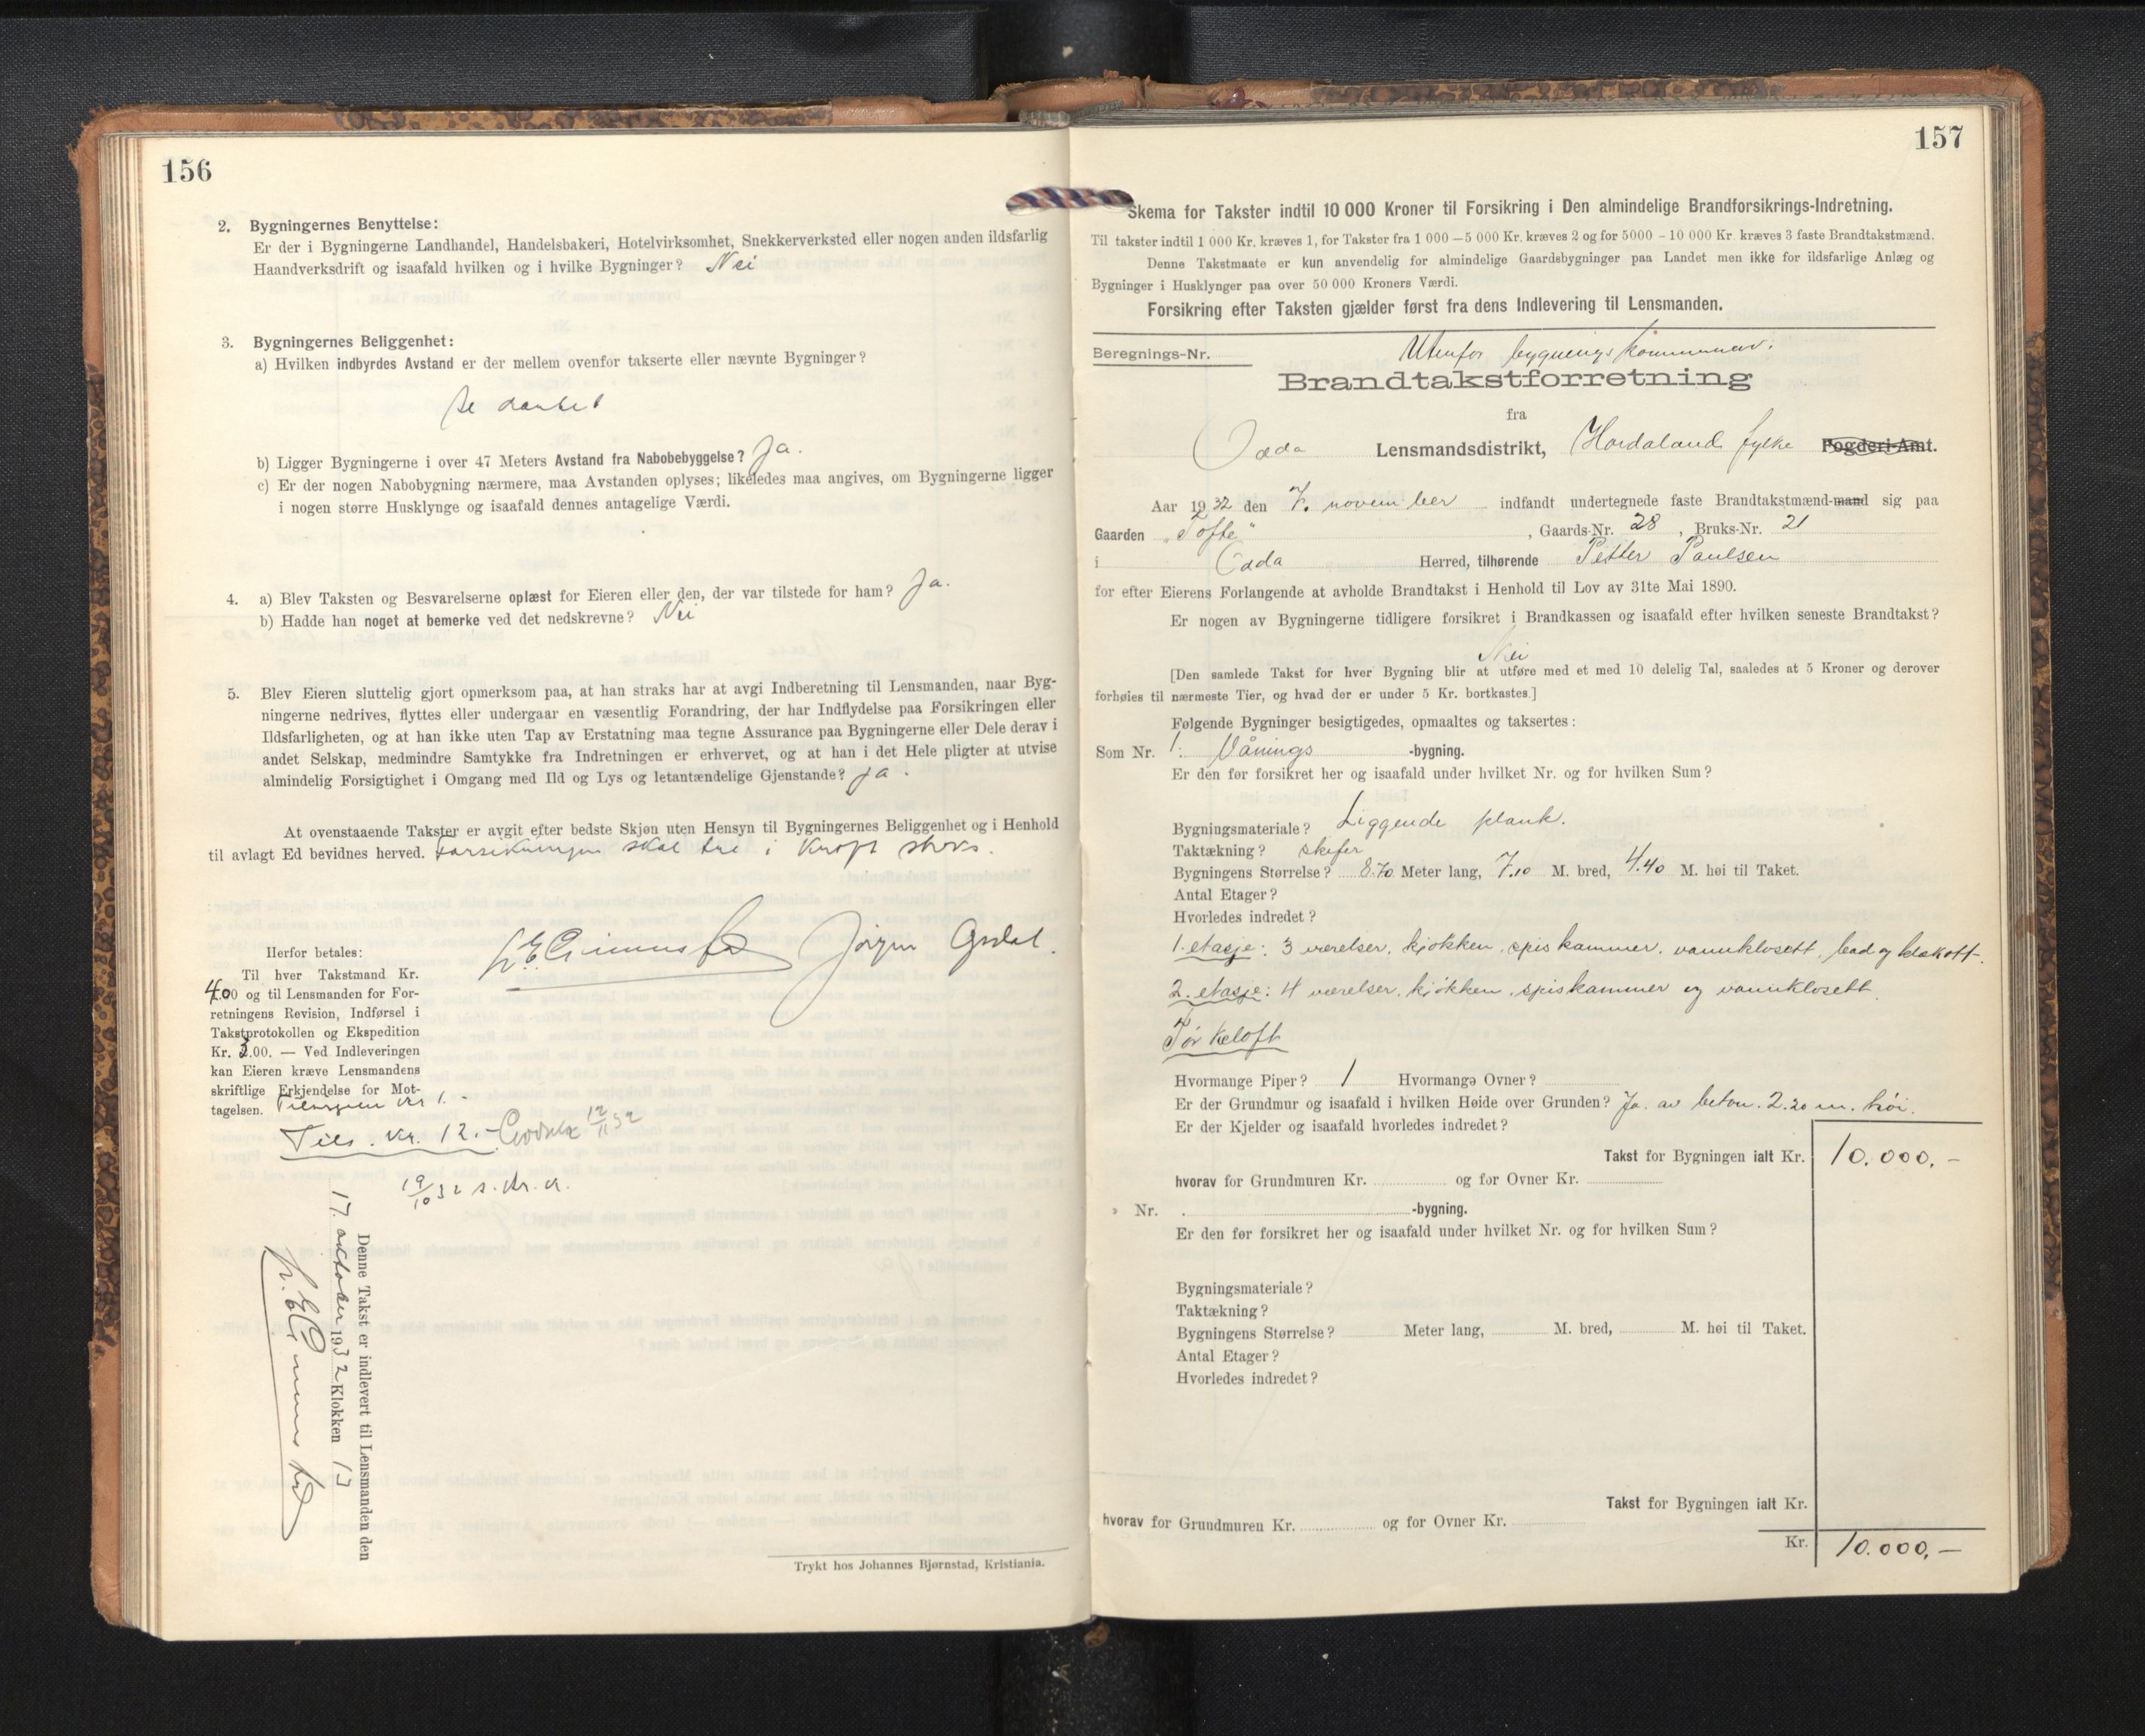 156
2. Bygningernes Benyttelse:
Er der i Bygningerne Landhandel, Handelsbakeri, Hotelvirksomhet, Snekkerverksted eller nogen anden ildsfarlig
Haandverksdrift og isaafald hvilken og i hvilke Bygninger? Nei
3. Bygningernes Beliggenhet:
a) Hvilken indbyrdes Avstand er der mellem ovenfor takserte eller nævnte Bygninger?
Se
b) Ligger Bygningerne i over 47 Meters Avstand fra Nabobebyggelse? Ja.
c) Er der nogen Nabobygning nærmere, maa Avstanden oplyses; likeledes maa angives, om Bygningerne ligger
i nogen større Husklynge og isaafald dennes antagelige Værdi.
4. a) Blev Taksten og Besvarelserne oplæst for Eieren eller den, der var tilstede for ham? Ja.
b) Hadde han noget at bemerke ved det nedskrevne? Nei
5. Blev Eieren sluttelig gjort opmerksom paa, at han straks har at avgi Indberetning til Lensmanden, naar Byg-
ningerne nedrives, flyttes eller undergaar en væsentlig Forandring, der har Indflydelse paa Forsikringen eller
Ildsfarligheten, og at han ikke uten Tap av Erstatning maa tegne Assurance paa Bygningerne eller Dele derav i
andet Selskap, medmindre Samtykke fra Indretningen er erhvervet, og at han i det Hele pligter at utvise
almindelig Forsigtighet i Omgang med Ild og Lys og letantændelige Gjenstande? Ja.
At ovenstaaende Takster er avgit efter bedste Skjøn uten Hensyn til Bygningernes Beliggenhet og i Henhold
til avlagt Ed bevidnes herved. Forsikringen skal tre i kraft straks.
Jørgen
Herfor betales:
Til hver Takstmand Kr.
4.00 og til Lensmanden for For-
retningens Revision, Indførsel i
Takstprotokollen og Ekspedition
Kr. 3.00. — Ved Indleveringen
kan Eieren kræve Lensmandens
skriftlige Erkjendelse for Mot-
tagelsen. kr 1.-
Tils. kr. 12.- 12/11 32
19/10 32
Denne Takst er indlevert til Lensmanden den
17. oktober 1932 Klokken 13
Trykt hos Johannes Bjørnstad, Kristiania.
157
Skema for Takster indtil 10 000 Kroner til Forsikring i Den almindelige Brandforsikrings-Indretning.
Til takster indtil 1 000 Kr. kræves 1, for Takster fra 1 000 – 5 000 Kr. kræves 2 og for 5000 – 10 000 Kr. kræves 3 faste Brandtakstmænd.
Denne Takstmaate er kun anvendelig for almindelige Gaardsbygninger paa Landet men ikke for ildsfarlige Anlæg og
Bygninger i Husklynger paa over 50 000 Kroners Værdi.
Forsikring efter Taksten gjælder først fra dens Indlevering til Lensmanden.
Beregnings-Nr.
Utenfor bygningskommunen.
Brandtakstforretning
fra
Odda Lensmandsdistrikt, Hordaland fylke Fogderi-Amt.
Aar 1932 den 7. november indfandt undertegnede faste Brandtakstmænd-mand sig paa
Gaarden „Tofte", Gaards-Nr. 28, Bruks-Nr. 21
i Odda Herred, tilhørende Petter Paulsen
for efter Eierens Forlangende at avholde Brandtakst i Henhold til Lov av 31te Mai 1890.
Er nogen av Bygningerne tidligere forsikret i Brandkassen og isaafald efter hvilken seneste Brandtakst?
Nei
[Den samlede Takst for hver Bygning blir at utføre med et med 10 delelig Tal, saaledes at 5 Kroner og derover
forhøies til nærmeste Tier, og hvad der er under 5 Kr. bortkastes.]
Følgende Bygninger besigtigedes, opmaaltes og taksertes:
Som Nr. 1. Vånings -bygning.
Er den før forsikret her og isaafald under hvilket Nr. og for hvilken Sum?
Bygningsmateriale? Liggende plank.
Taktækning? skifer
Bygningens Størrelse? 8.70 Meter lang, 7.10 M. bred, 4.40 M. høi til Taket.
Antal Etager?
Hvorledes indredet?
1. etasje: 3 værelser, kjøkken, spiskammer, vannklosett, bad og
2. etasje: 4 værelser, kjøkken, spiskammer og vannklosett.
Tørkeloft
Hvormange Piper? 1 Hvormange Ovner?
Er der Grundmur og isaafald i hvilken Høide over Grunden? Ja. av beton. 2.20 m. høi.
Er der Kjelder og isaafald hvorledes indredet?
Takst for Bygningen ialt Kr. 10.000.-
hvorav for Grundmuren Kr. og for Ovner Kr.
» Nr. -bygning.
Er den før forsikret her og isaafald under hvilket Nr. og for hvilken Sum?
Bygningsmateriale?
Taktækning?
Bygningens Størrelse? Meter lang, M. bred, M. høi til Taket.
Antal Etager?
Hvorledes indredet?
Takst for Bygningen ialt Kr.
hvorav for Grundmuren Kr. og for Ovner Kr.
Kr. 10.000.-